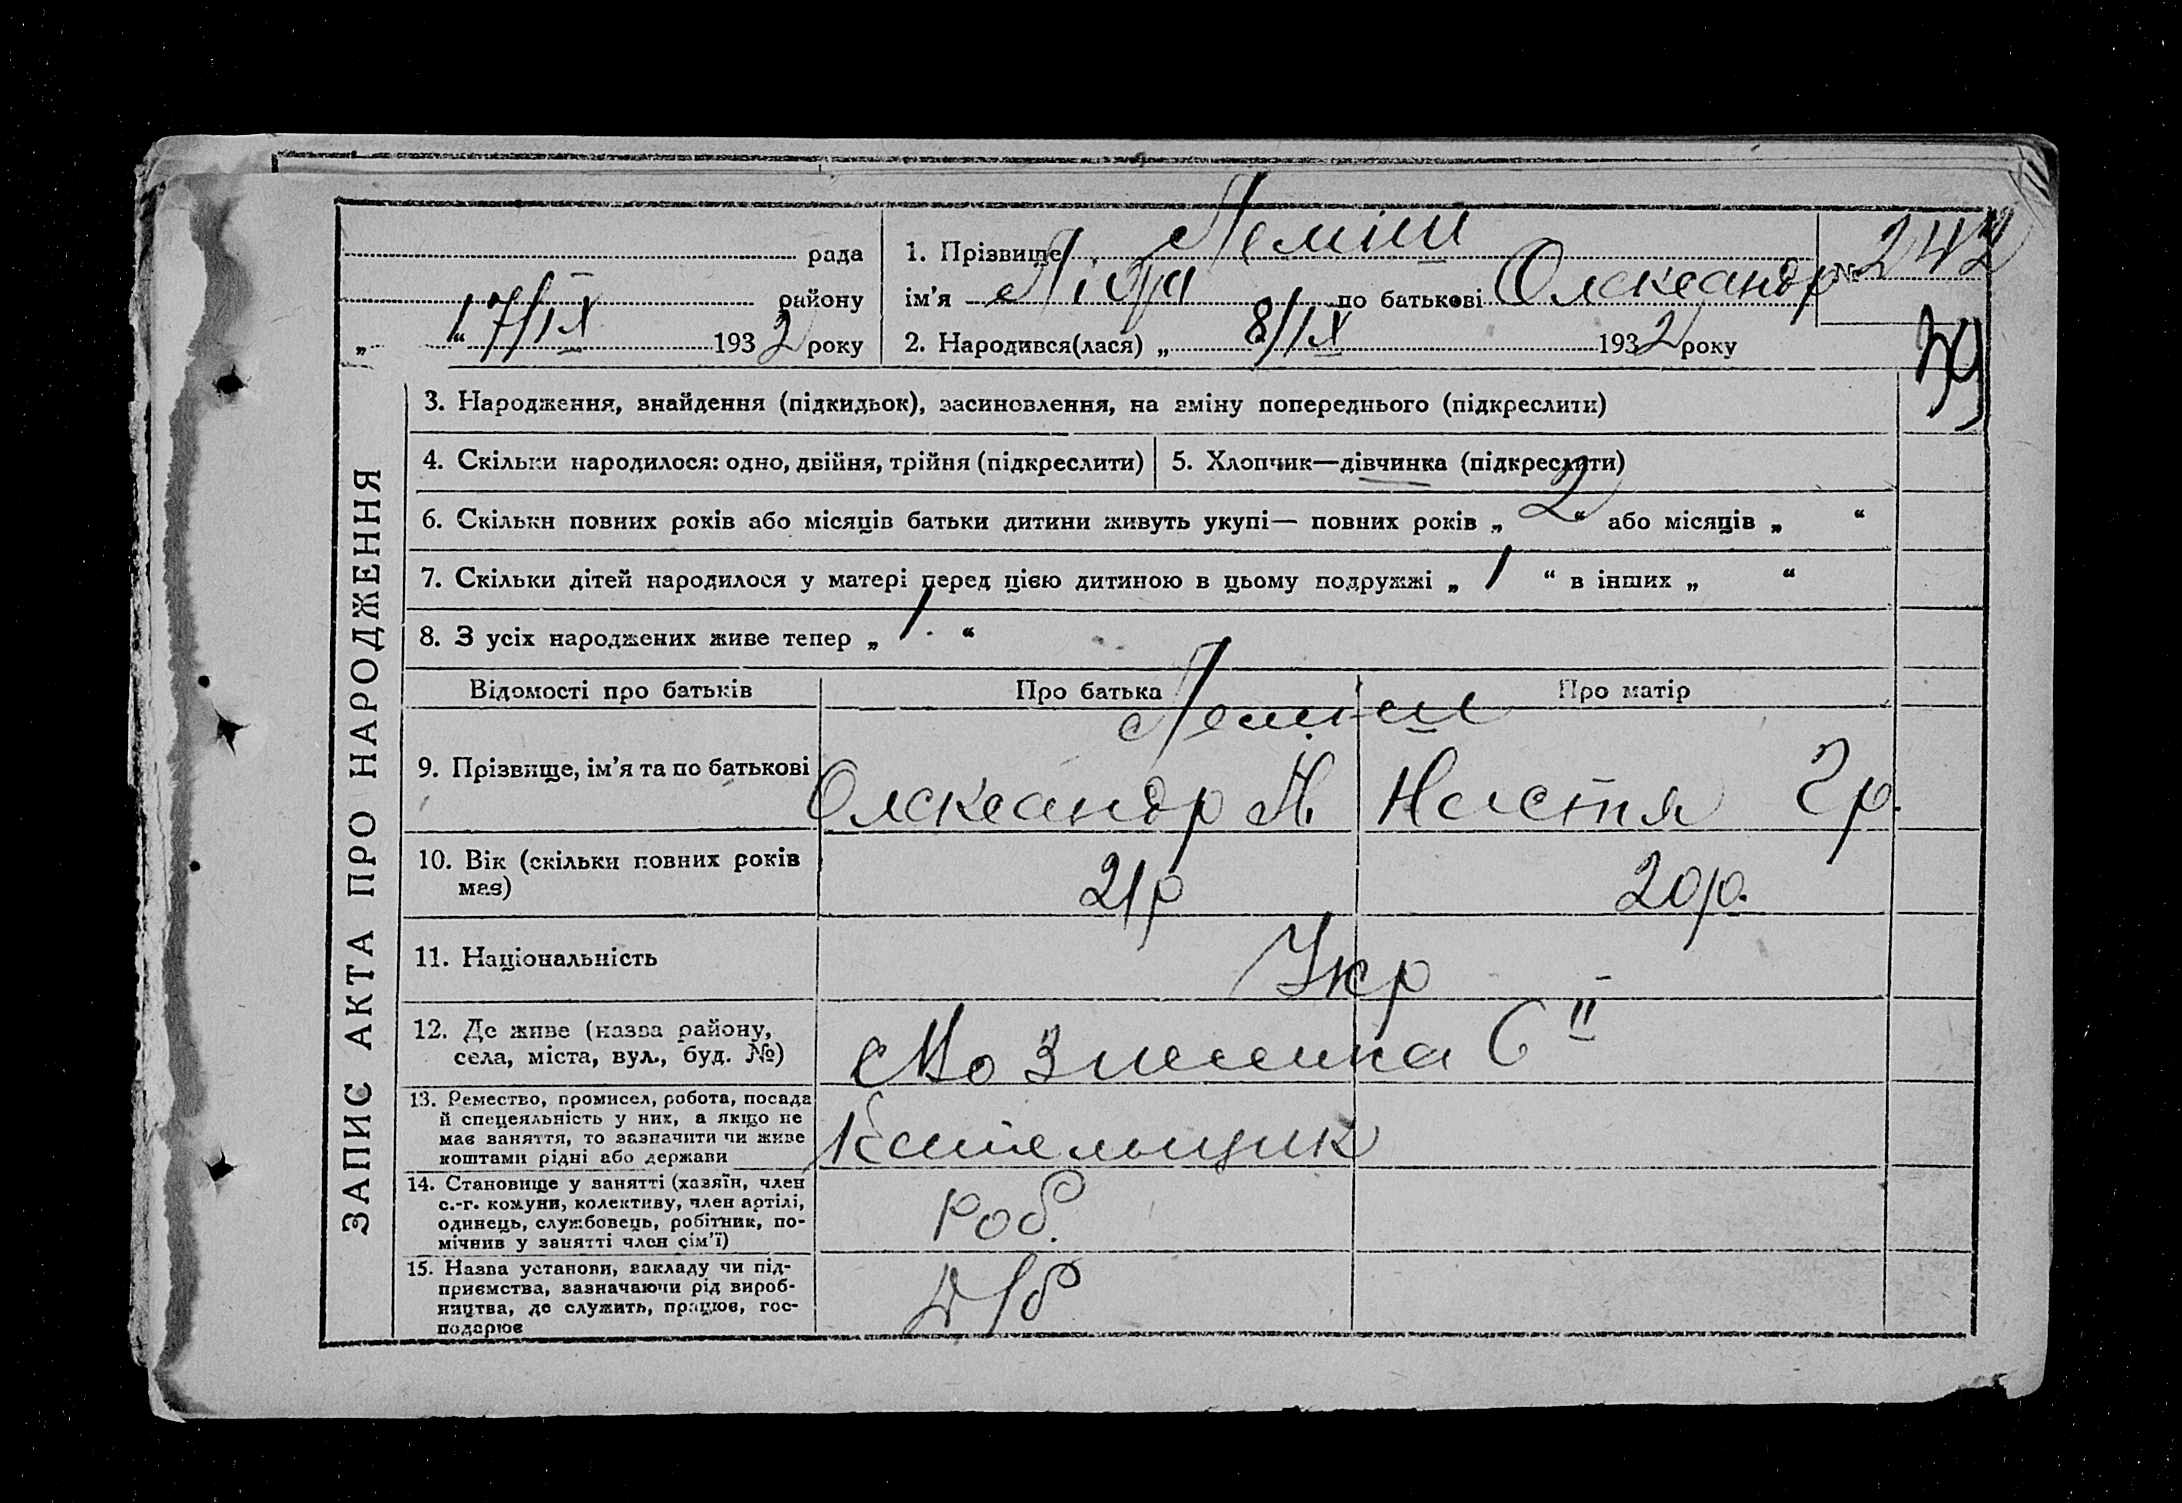 ЗАПИС АКТА ПРО НАРОДЖЕННЯ
рада
району
„ “ 17/IX 1932 року
1. Прізвище Леміш
№ 242
ім’я Ліда по батькові Олександр
2. Народився(лася) „ 8/IX 1932 року
39
3. Народження, знайдення (підкидьок), засиновлення, на зміну попереднього (підкреслити)
4. Скільки народилося: одно, двійня, трійня (підкреслити)
5. Хлопчик—дівчинка (підкреслити)
6. Скільки повних років або місяців батьки дитини живуть укупі— повних років „ 2 “ або місяців „ “
7. Скільки дітей народилося у матері перед цією дитиною в цьому подружжі „ 1 “ в інших „ “
8. З усіх народжених живе тепер „ 1. “
Відомості про батьків
Про батька
Про матір
Леміш
9. Прізвище, ім’я та по батькові
Олександр М.
Настя Гр.
10. Вік (скільки повних років
має)
21р
20р.
11. Національність
Укр
12. Де живе (назва району,
села, міста, вул., буд. №)
6 II
13. Ремество, промисел, робота, посада
й спецеяльність у них, а якщо не
має заняття, то зазначити чи живе
коштами рідні або держави
Котельщик
14. Становище у занятті (хазяїн, член
с.-г. комуни, колективу, член артілі,
одинець, службовець, робітник, по-
мічнив у занятті член сім’ї)
роб.
15. Назва установи, закладу чи під-
приємства, зазначаючи рід вироб-
ництва, де служить, працює, гос-
подарює